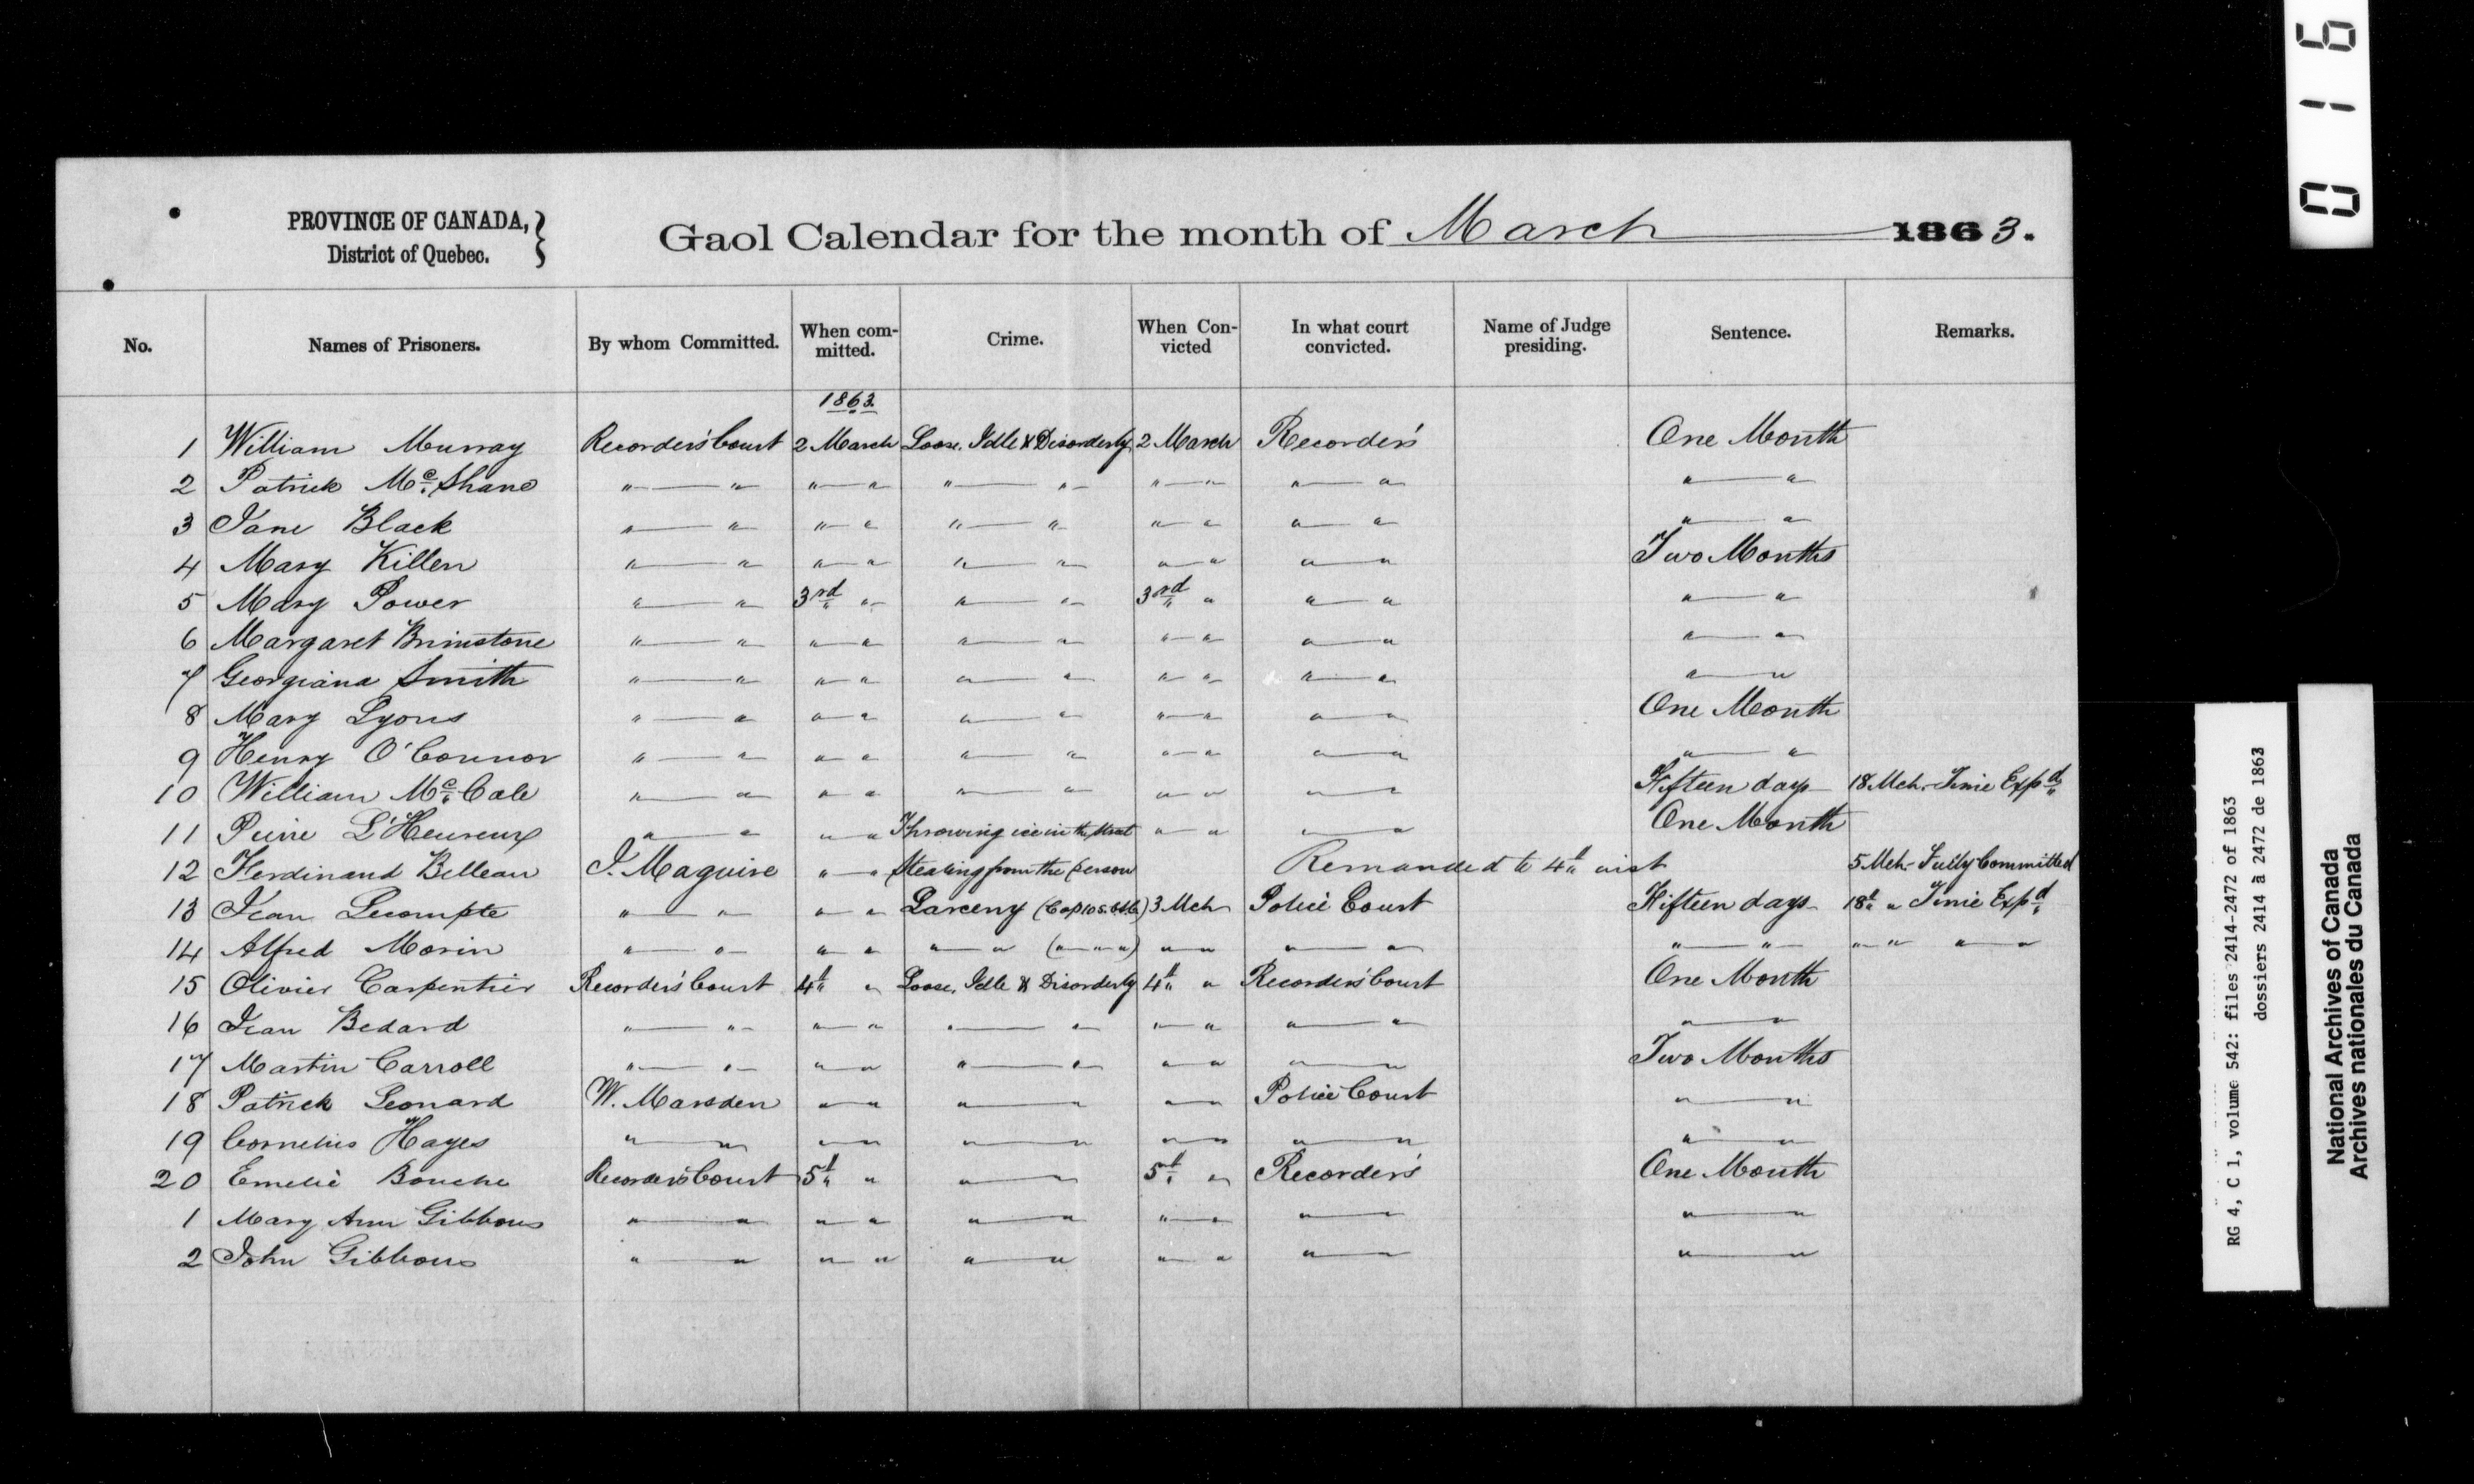 0 1 6
PROVINCE OF CANADA,
District of Quebec.
Gaol Calendar for the month of March 1863.
No. Names of Prisoners. By whom Committed. When com-mitted. Crime. When Con-victed In what court convicted. Name of Judge presiding. Sentence. Remarks.
1863.
1 William Murray Recorder's Court 2 March Loose, Idle & Disorderly 2 March Recorder's One Month
2 Patrick Mc. Shane " " " " " " " " " " " "
3 Jane Black " " " " " " " " " " " "
4 Mary Killen " " " " " " " " " " Two Months
5 Mary Power " " 3rd " " " 3rd " " " " "
6 Margaret Brimstone " " " " " " " " " " " "
7 Georgiana Smith " " " " " " " " " " " "
8 Mary Lyons " " " " " " " " " " One Month
9 Henry O'Connor " " " " " " " " " " " "
10 William Mc. Cale " " " " " " " " " " Fifteen days 18 Mch. Time Expd
11 Pierre L'Heureux " " " " Throwing ice in the street " " " " One Month
12 Ferdinand Belleau J. Maguire " " Stealing from the person Remanded to 4th inst 5 Mch. Fully Committed
13 Jean Lecompte " " " " Larceny (Cap 105. 3 Mch Police Court Fifteen days 18th " Time Expd
14 Alfred Morin " " " " " " (" " ") " " " " " " " " " "
15 Olivier Carpentier Recorder's Court 4th " Loose, Idle & Disorderly 4th " Recorder's Court One Month
16 Jean Bedard " " " " " " " " " " " "
17 Martin Carroll " " " " " " " " " " Two Months
18 Patrick Leonard W. Marsden " " " " " " Police Court " "
19 Cornelius Hayes " " " " " " " " " " " "
20 Emelie Bouche Recorder's Court 5th " " " 5th " Recorder's One Month
1 Mary Ann Gibbons " " " " " " " " " " " "
2 John Gibbons " " " " " " " " " " " "
RG 4, C 1, volume 542: files 2414-2472 of 1863
dossiers 2414 à 2472 de 1863
National Archives of Canada
Archives nationales du Canada